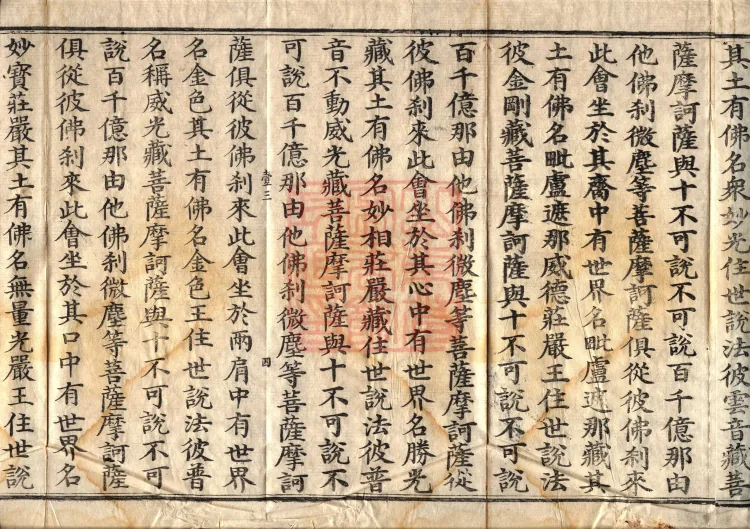 其土有佛名衆妙光住世說法彼雲音藏菩
薩摩訶薩與十不可說不可說百千億那由
他佛刹微塵等菩薩摩訶薩俱從彼佛刹來
此會坐於其齋中有世界名毗盧遮那藏其
土有佛名毗盧遮那威德莊嚴王住世說法
彼金剛藏菩薩摩訶薩與十不可說不可說
百千億那由他佛刹微塵等菩薩摩訶薩從
彼佛刹來此會坐於其心中有世界名勝光
藏其土有佛名妙相莊嚴藏住世說法彼普
音不動威光藏菩薩摩訶薩與十不可說不
可說百千億那由他佛刹微塵等菩薩摩訶
壹三 四
薩俱從彼佛刹來此會坐於兩肩中有世界
名金色其土有佛名金色王住世說法彼普
名稱威光藏菩薩摩訶薩與十不可說不可
說百千億那由他佛刹微塵等菩薩摩訶薩
俱從彼佛刹來此會坐於其口中有世界名
妙寶莊嚴其土有佛名無量光嚴王住世說